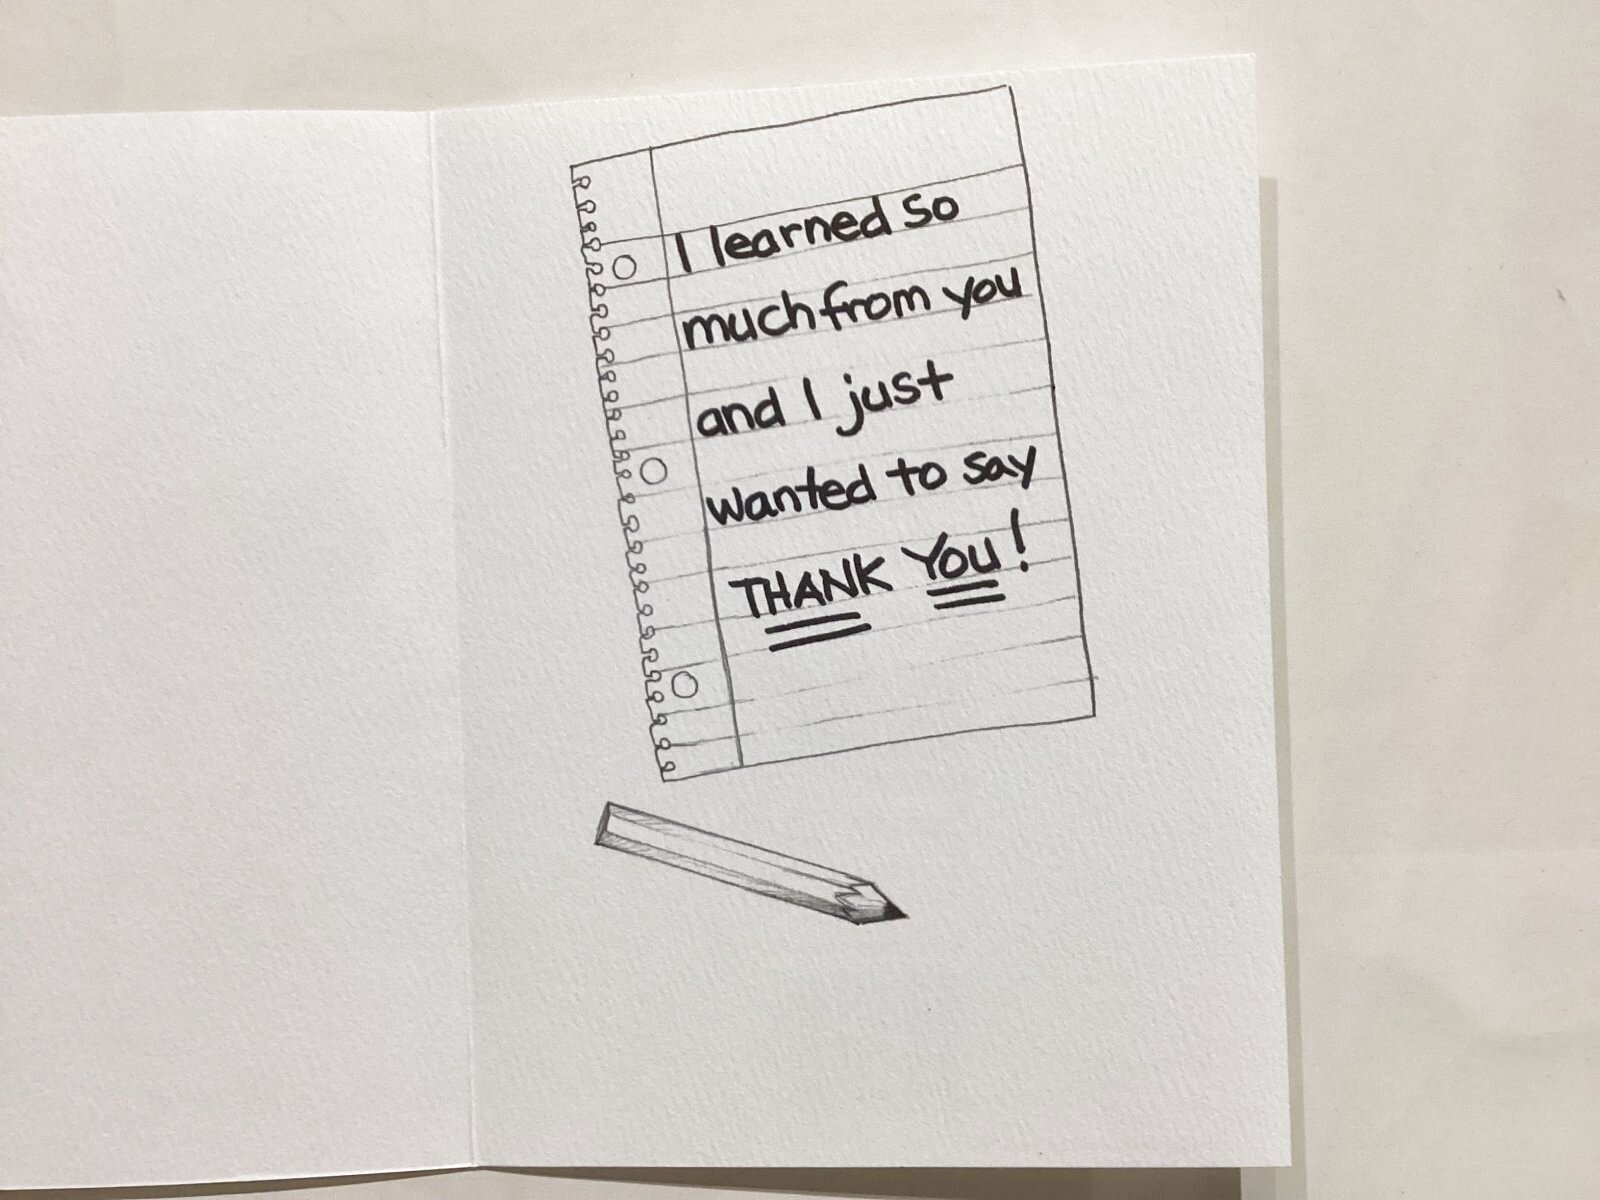 I learned so
much from you
and I just
wanted to say
THANK YOU!